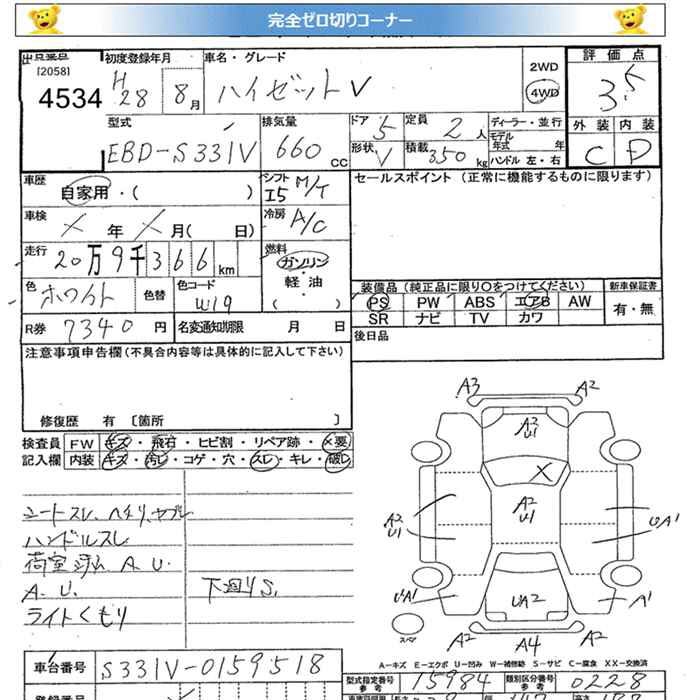 完全ゼロ切りコーナー
[2058]
4534
初度登録年月
H28 8月
車名・グレード
ハイゼットV
2WD
4WD
評価点
3.5
外装 内装
C D
型式
EBD-S331V
排気量
660 cc
ドア 5
形状 V
定員 2人
積載 350 kg
ディーラー・並行
モデル年式 年
ハンドル 左・右
車歴
自家用・( )
シフト
I5 M/T
セールスポイント (正常に機能するものに限ります)
車検
X 年 X 月( 日)
冷房
A/C
走行
20万9千366km
燃料
ガソリン・軽油
色
ホワイト
色替
色コード
W19
装備品 (純正品に限り○をつけてください)
新車保証書
PS PW ABS エアB AW
有・無
SR ナビ TV カワ
R券 7340 円
名変通知期限 月 日
後日品
注意事項申告欄(不具合内容等は具体的に記入して下さい)
修復歴 有 [箇所 ]
検査員記入欄
FW キズ・飛石・ヒビ割・リペア跡・×要
内装 キズ・汚レ・コゲ・穴・スレ・キレ・破レ
シートスレ、ヘタリ、ヤブレ
ハンドルスレ
A.U.
A.U.
下廻りS.
ライトくもり
A3 A2
A2 U1
X
A2 U1
A2 U1
UA1
UA1
UA2
A1
スペア
A2 A4 A2
A-キズ E-エクボ U-凹み W-補修跡 S-サビ C-腐食 XX-交換済
車台番号
S331V-0159518
型式指定番号 参考
15984
類別区分番号 参考
0228